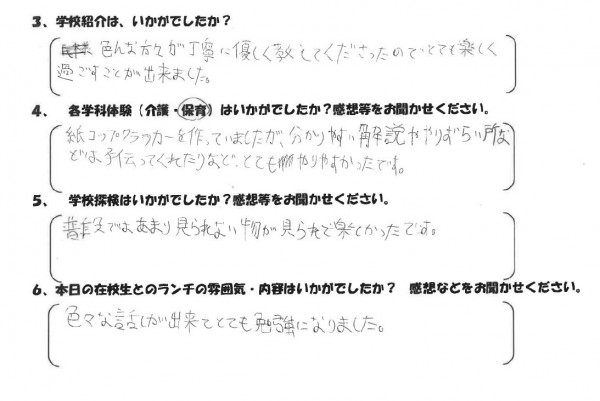 3、学校紹介は、いかがでしたか？
色んな方々が丁寧に優しく教えてくださったのでとても楽しく
過ごすことが出来ました。
4、 各学科体験（介護・保育）はいかがでしたか？感想等をお聞かせください。
紙コップクラッカーを作っていましたが、分かりやすい解説ややりずらい所な
どは手伝ってくれたりなど、とてもやりやすかったです。
5、 学校探検はいかがでしたか？感想等をお聞かせください。
普段ではあまり見られない物が見られて楽しかったです。
6、本日の在校生とのランチの雰囲気・内容はいかがでしたか？ 感想などをお聞かせください。
色々な話しが出来てとても勉強になりました。